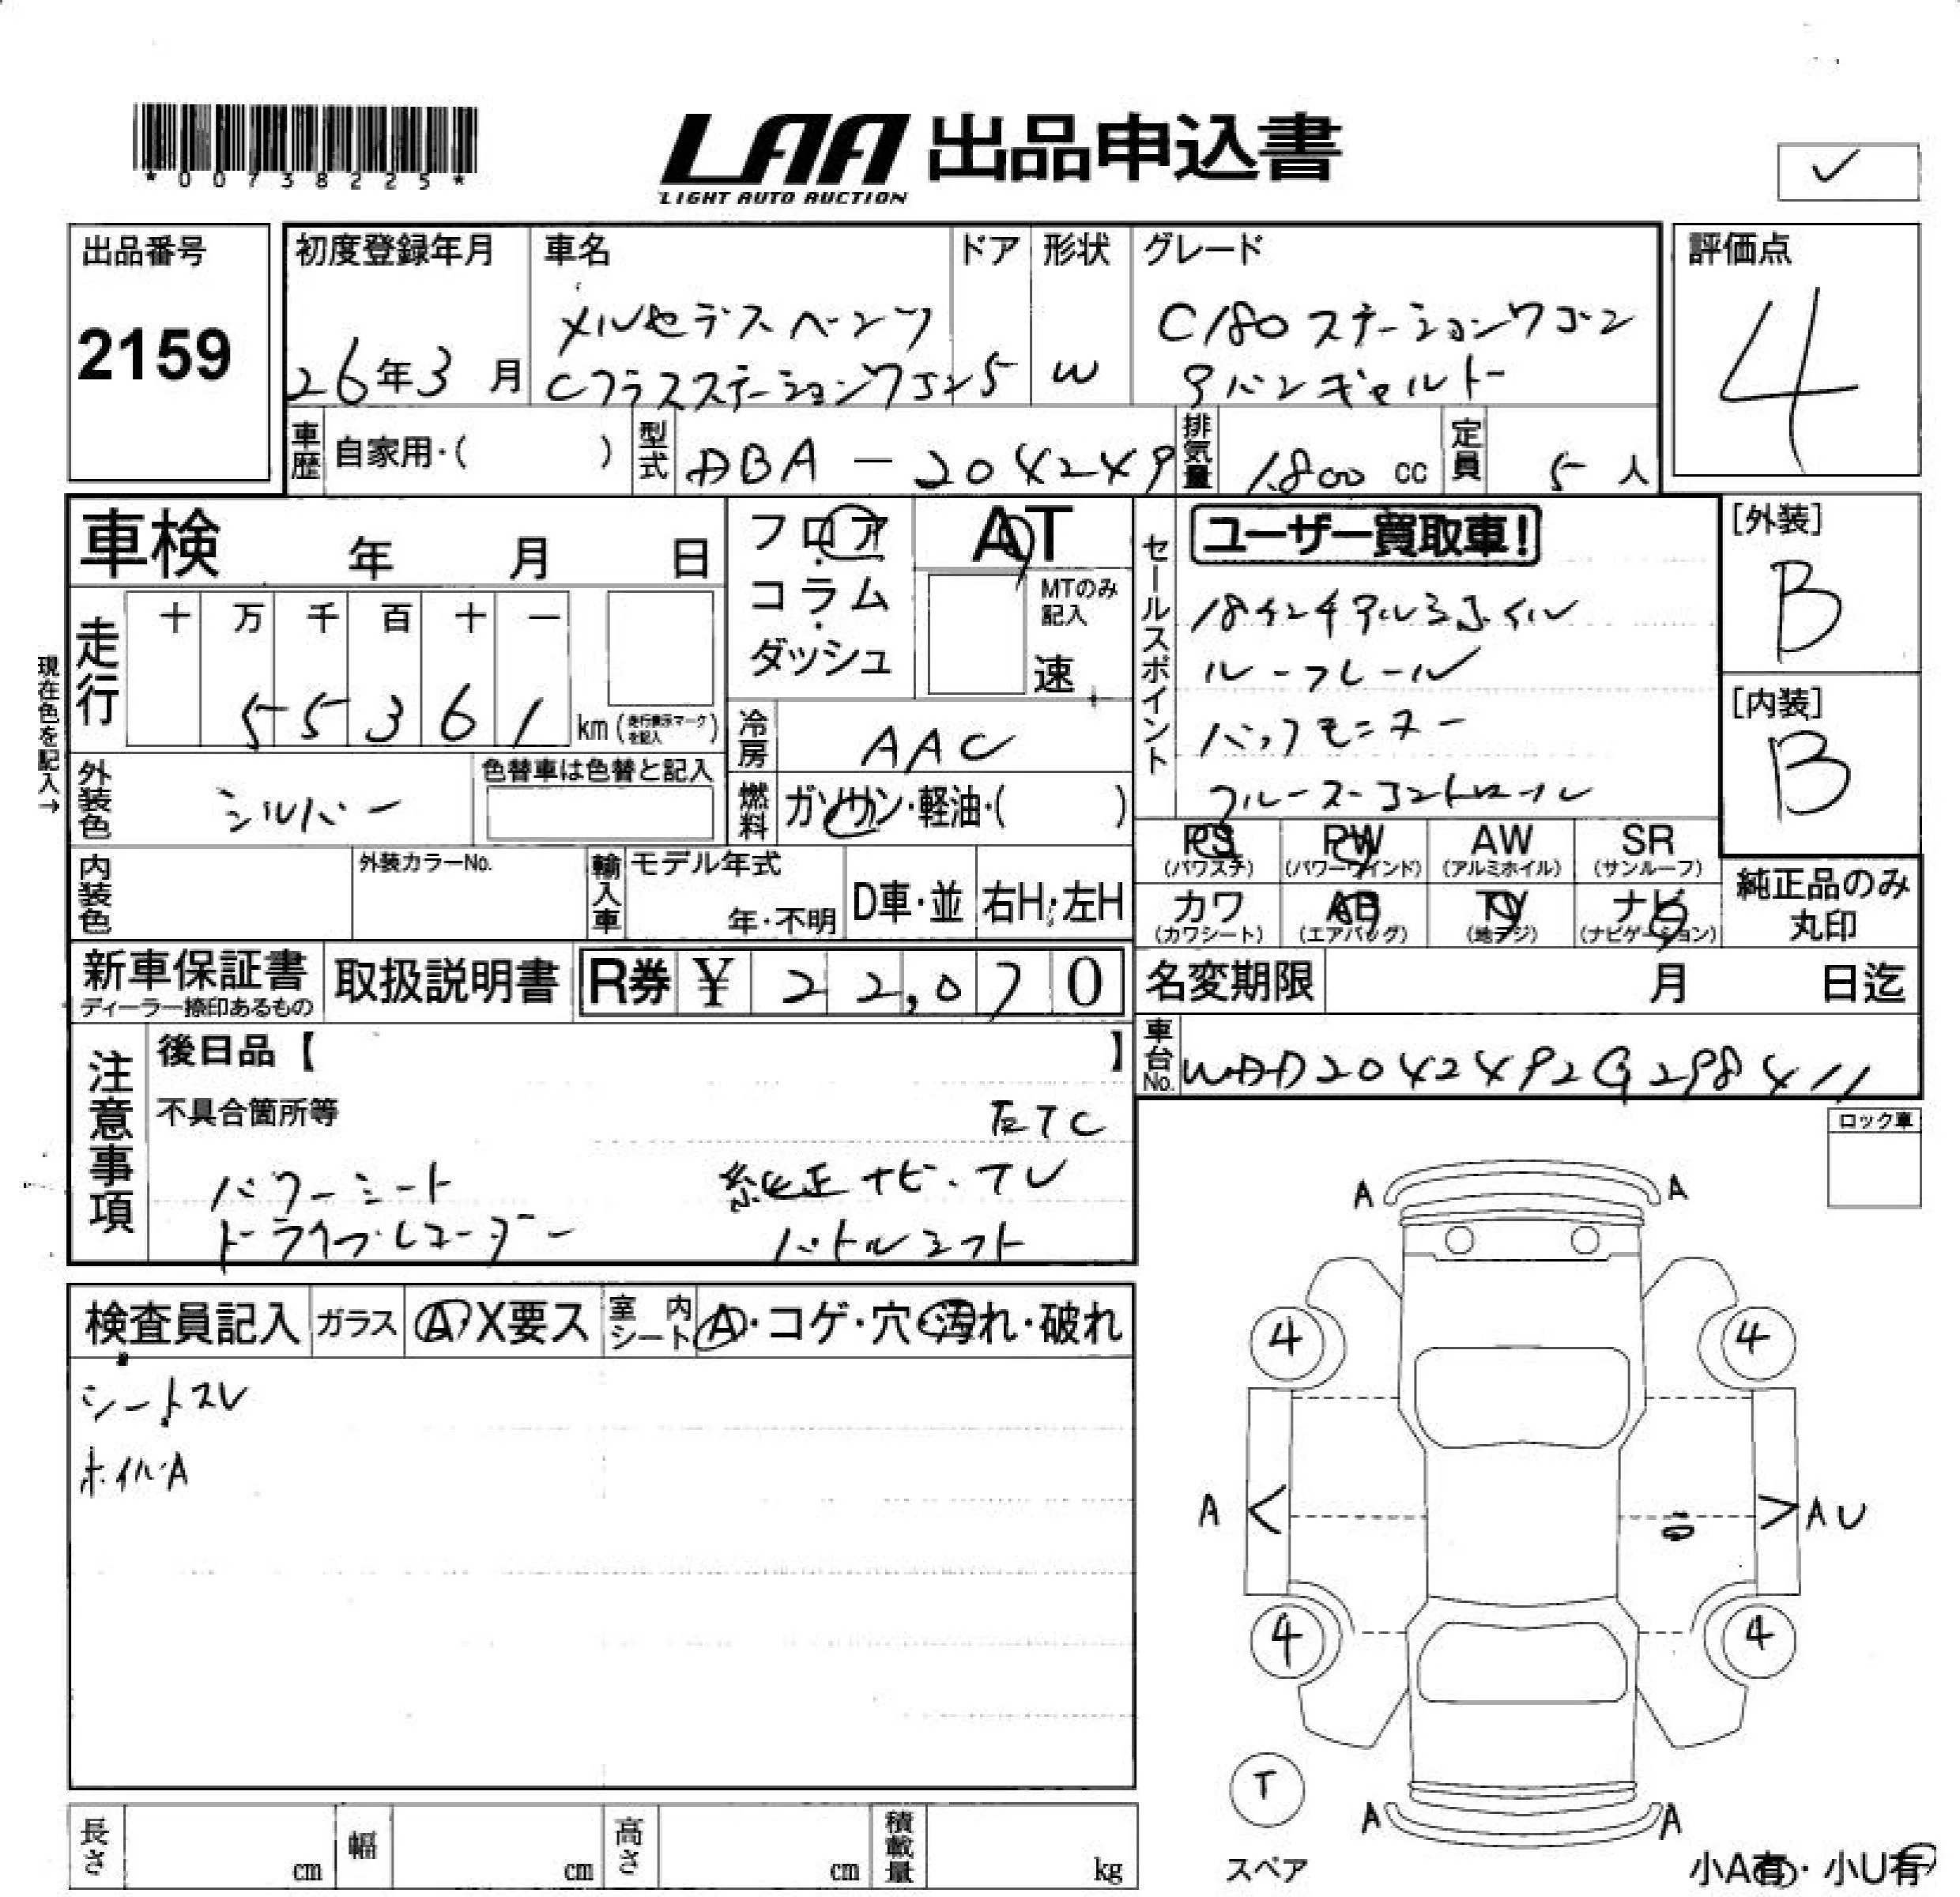 *00738225*
LAA 出品申込書
LIGHT AUTO AUCTION
✓
出品番号
2159
初度登録年月
26年3月
車名
メルセデスベンツ
Cクラスステーションワゴン
ドア
5
形状
W
グレード
C180ステーションワゴン
アバンギャルド
評価点
4
車歴 自家用・( )
型式 DBA-204249
排気量 1800 cc
定員 5人
車検 年 月 日
フロア
・
コラム
・
ダッシュ
AT
MTのみ
記入
速
セールスポイント
ユーザー買取車!
18インチアルミホイル
ルーフレール
バックモニター
クルーズコントロール
[外装]
B
[内装]
B
現在色を記入→
走行
十 万 千 百 十 一
5 5 3 6 1
km (走行表示マークを記入)
冷房 AAC
燃料 ガソリン・軽油・( )
外装色 シルバー
色替車は色替と記入
PS (パワステ)
PW (パワーウインド)
AW (アルミホイル)
SR (サンルーフ)
カワ (カワシート)
AB (エアバッグ)
TV (地デジ)
ナビ (ナビゲーション)
純正品のみ
丸印
内装色
外装カラーNo.
輸入車 モデル年式
年・不明
D車・並
右H・左H
新車保証書
ディーラー捺印あるもの
取扱説明書
R券 ¥ 22,070
名変期限 月 日迄
車台No. WDD2042492G298411
注意事項
後日品【 】
不具合箇所等
ETC
パワーシート 純正ナビ・TV
ドライブレコーダー パドルシフト
ロック車
検査員記入
ガラス A・X要ス
室内シート A・コゲ・穴・汚れ・破れ
シートスレ
ホイルA
A A
4 4
A < > AU
4 4
T
スペア
A A
小A有・小U有
長さ cm
幅 cm
高さ cm
積載量 kg